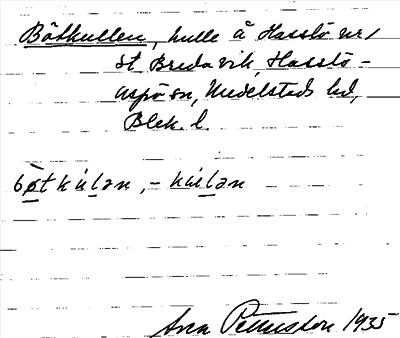 Båtkullen, kulle å Hasslö nr 1
st. Bredavik, Hasslö-
aspö sn, Medelstads hd,
Blek. l.
bo̱tkuḻən, -kuḻən
Petersson 1935